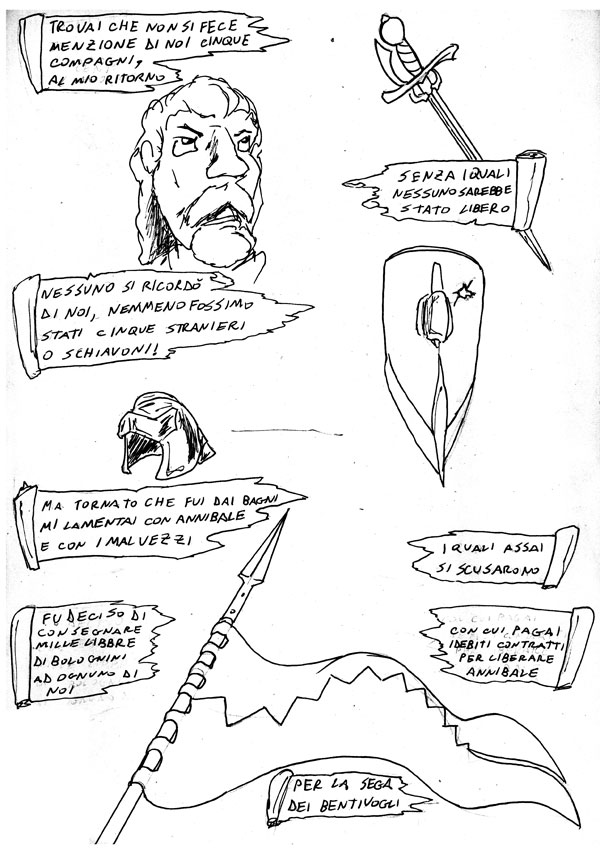 TROVAI CHE NON SI FECE
MENZIONE DI NOI CINQUE
COMPAGNI,
AL MIO RITORNO
SENZA I QUALI
NESSUNO SAREBBE
STATO LIBERO
NESSUNO SI RICORDÒ
DI NOI, NEMMENO FOSSIMO
STATI CINQUE STRANIERI
O SCHIAVONI!
MA TORNATO CHE FUI DAI BAGNI
MI LAMENTAI CON ANNIBALE
E CON I MALVEZZI
I QUALI ASSAI
SI SCUSARONO
FU DECISO DI
CONSEGNARE
MILLE LIBBRE
DI BOLOGNINI
AD OGNUNO DI
NOI
CON CUI PAGAI
I DEBITI CONTRATTI
PER LIBERARE
ANNIBALE
PER LA SEGA
DEI BENTIVOGLI